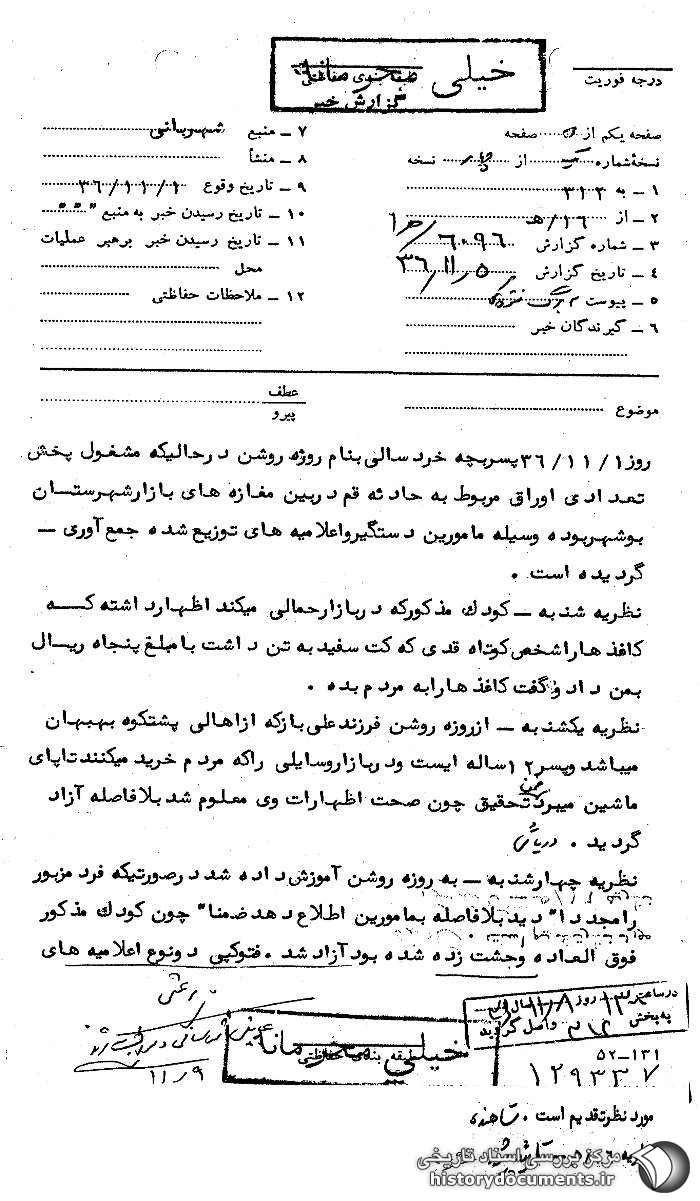 درجه فوریت
خیلی محرمانه
طبقه بندی حفاظتی
گزارش خبر
صفحه یکم از صفحه
نسخهٔ شماره یک از چهار نسخه
۱ ـ به ۳۱۲
۲ ـ از ۱۶/هـ
۳ ـ شماره گزارش ۶۰۹۶/هـ۱
۴ ـ تاریخ گزارش ۳۶/۱۱/۵
۵ ـ پیوست ۲ برگ فتوکپی
۶ ـ گیرندگان خبر
۷ ـ منبع شهربانی
۸ ـ منشأ
۹ ـ تاریخ وقوع ۳۶/۱۱/۱
۱۰ ـ تاریخ رسیدن خبر به منبع " " "
۱۱ ـ تاریخ رسیدن خبر برهبر عملیات
محل
۱۲ ـ ملاحظات حفاظتی
موضوع
عطف
پیرو
روز ۳۶/۱۱/۱ پسربچه خردسالی بنام روزه روشن درحالیکه مشغول پخش
تعدادی اوراق مربوط به حادثه قم دربین مغازه های بازارشهرستان
بوشهربوده وسیله مامورین دستگیرواعلامیه های توزیع شده جمع آوری ـ
گردیده است .
نظریه شنبه ـ کودك مذکورکه دربازارحمالی میکند اظهارداشته کـه
کاغذهاراشخص کوتاه قدی که کت سفیدبه تن داشت بامبلغ پنجاه ریال
بمن داد وگفت کاغذهارابه مردم بده .
نظریه یکشنبه ـ ازروزه روشن فرزندعلی بازکه ازاهالی پشتکوه بهبهان
میباشد وپسر ۱۲ ساله ایست ودربازاروسایلی راکه مردم خرید میکنندتاپای
ماشین میبرد تحقیق چون صحت اظهارات وی معلوم شد بلافاصله آزاد
گردید . دریائی
نظریه چهارشنبه ـ به روزه روشن آموزش داده شد درصورتیکه فرد مزبور
رامجددا" دید بلافاصله بمامورین اطلاع دهد ضمنا" چون کودك مذکور
فوق العاده وحشت زده شده بود آزاد شد . فتوکپی دونوع اعلامیه های
در ساعت روز ۱۱/۸
به بخش ۳۱۲ واصل گردید
خیلی محرمانه
طبقه بندی حفاظتی
۱۱/۹
۵۲-۱۳۱
۱۲۹۳۳۷
مورد نظرتقدیم است .
مرکز بررسی اسناد تاریخی
historydocuments.ir